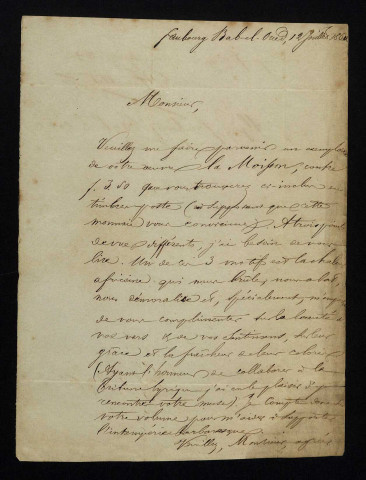 faubourg Bab-el-Oued, 12 Juillet
Monsieur,
Veuillez me faire parvenir un exemplaire
de votre œuvre La Moisson, contre
f. 3,50 que vous trouverez ci-inclus en
timbres-poste (
monnaie vous convienne). A trois points
de vue différents, j'ai besoin de vous
lire. Un de ces 3 motifs est la chaleur
africaine qui nous brûle, nous abat,
nous démoralise et, spécialement,
de vous complimenter de la beauté de
vos vers & de vos sentiments, de leur
grâce et la fraîcheur de leur coloris
(Ayant l'honneur de collaborer à la
Tribune lyrique j'ai eu le plaisir d'y
rencontrer votre muse) Je compte sur
votre volume pour m'aider à supporter
l'intempérie barbaresque
Veuillez, Monsieur, agréer